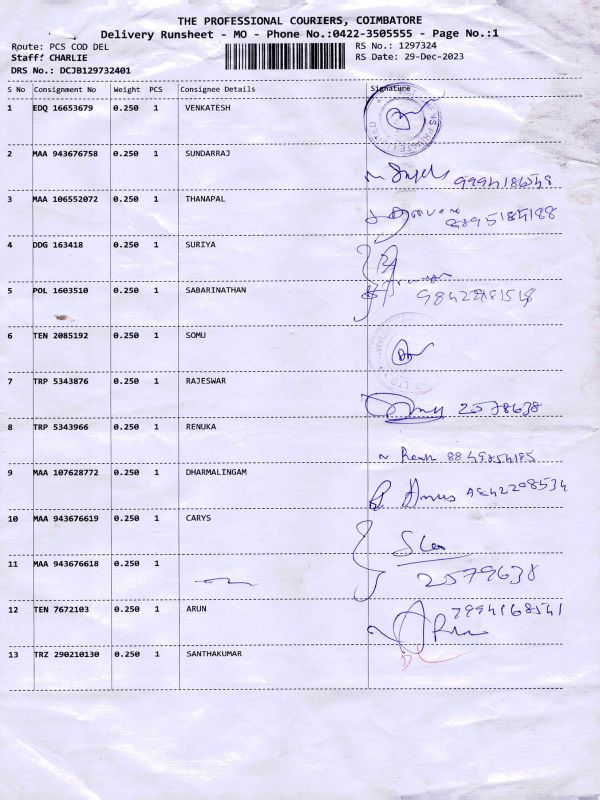 THE PROFESSIONAL COURIERS, COIMBATORE
Delivery Runsheet - MO - Phone No.:0422-3505555 - Page No.:1
Route: PCS COD DEL RS No.: 1297324
Staff: CHARLIE RS Date: 29-Dec-2023
DRS No.: DCJB129732401
S No Consignment No Weight PCS Consignee Details Signature
1 EDQ 16653679 0.250 1 VENKATESH
2 MAA 943676758 0.250 1 SUNDARRAJ
9994186548
3 MAA 106552072 0.250 1 THANAPAL
8895184188
4 DDG 163418 0.250 1 SURIYA
5 POL 1603510 0.250 1 SABARINATHAN
6 TEN 2085192 0.250 1 SOMU
7 TRP 5343876 0.250 1 RAJESWAR
2578638
8 TRP 5343966 0.250 1 RENUKA
9 MAA 107628772 0.250 1 DHARMALINGAM
9842208534
10 MAA 943676619 0.250 1 CARYS
11 MAA 943676618 0.250 1
2579638
12 TEN 7672103 0.250 1 ARUN 7994168541
13 TRZ 290210130 0.250 1 SANTHAKUMAR